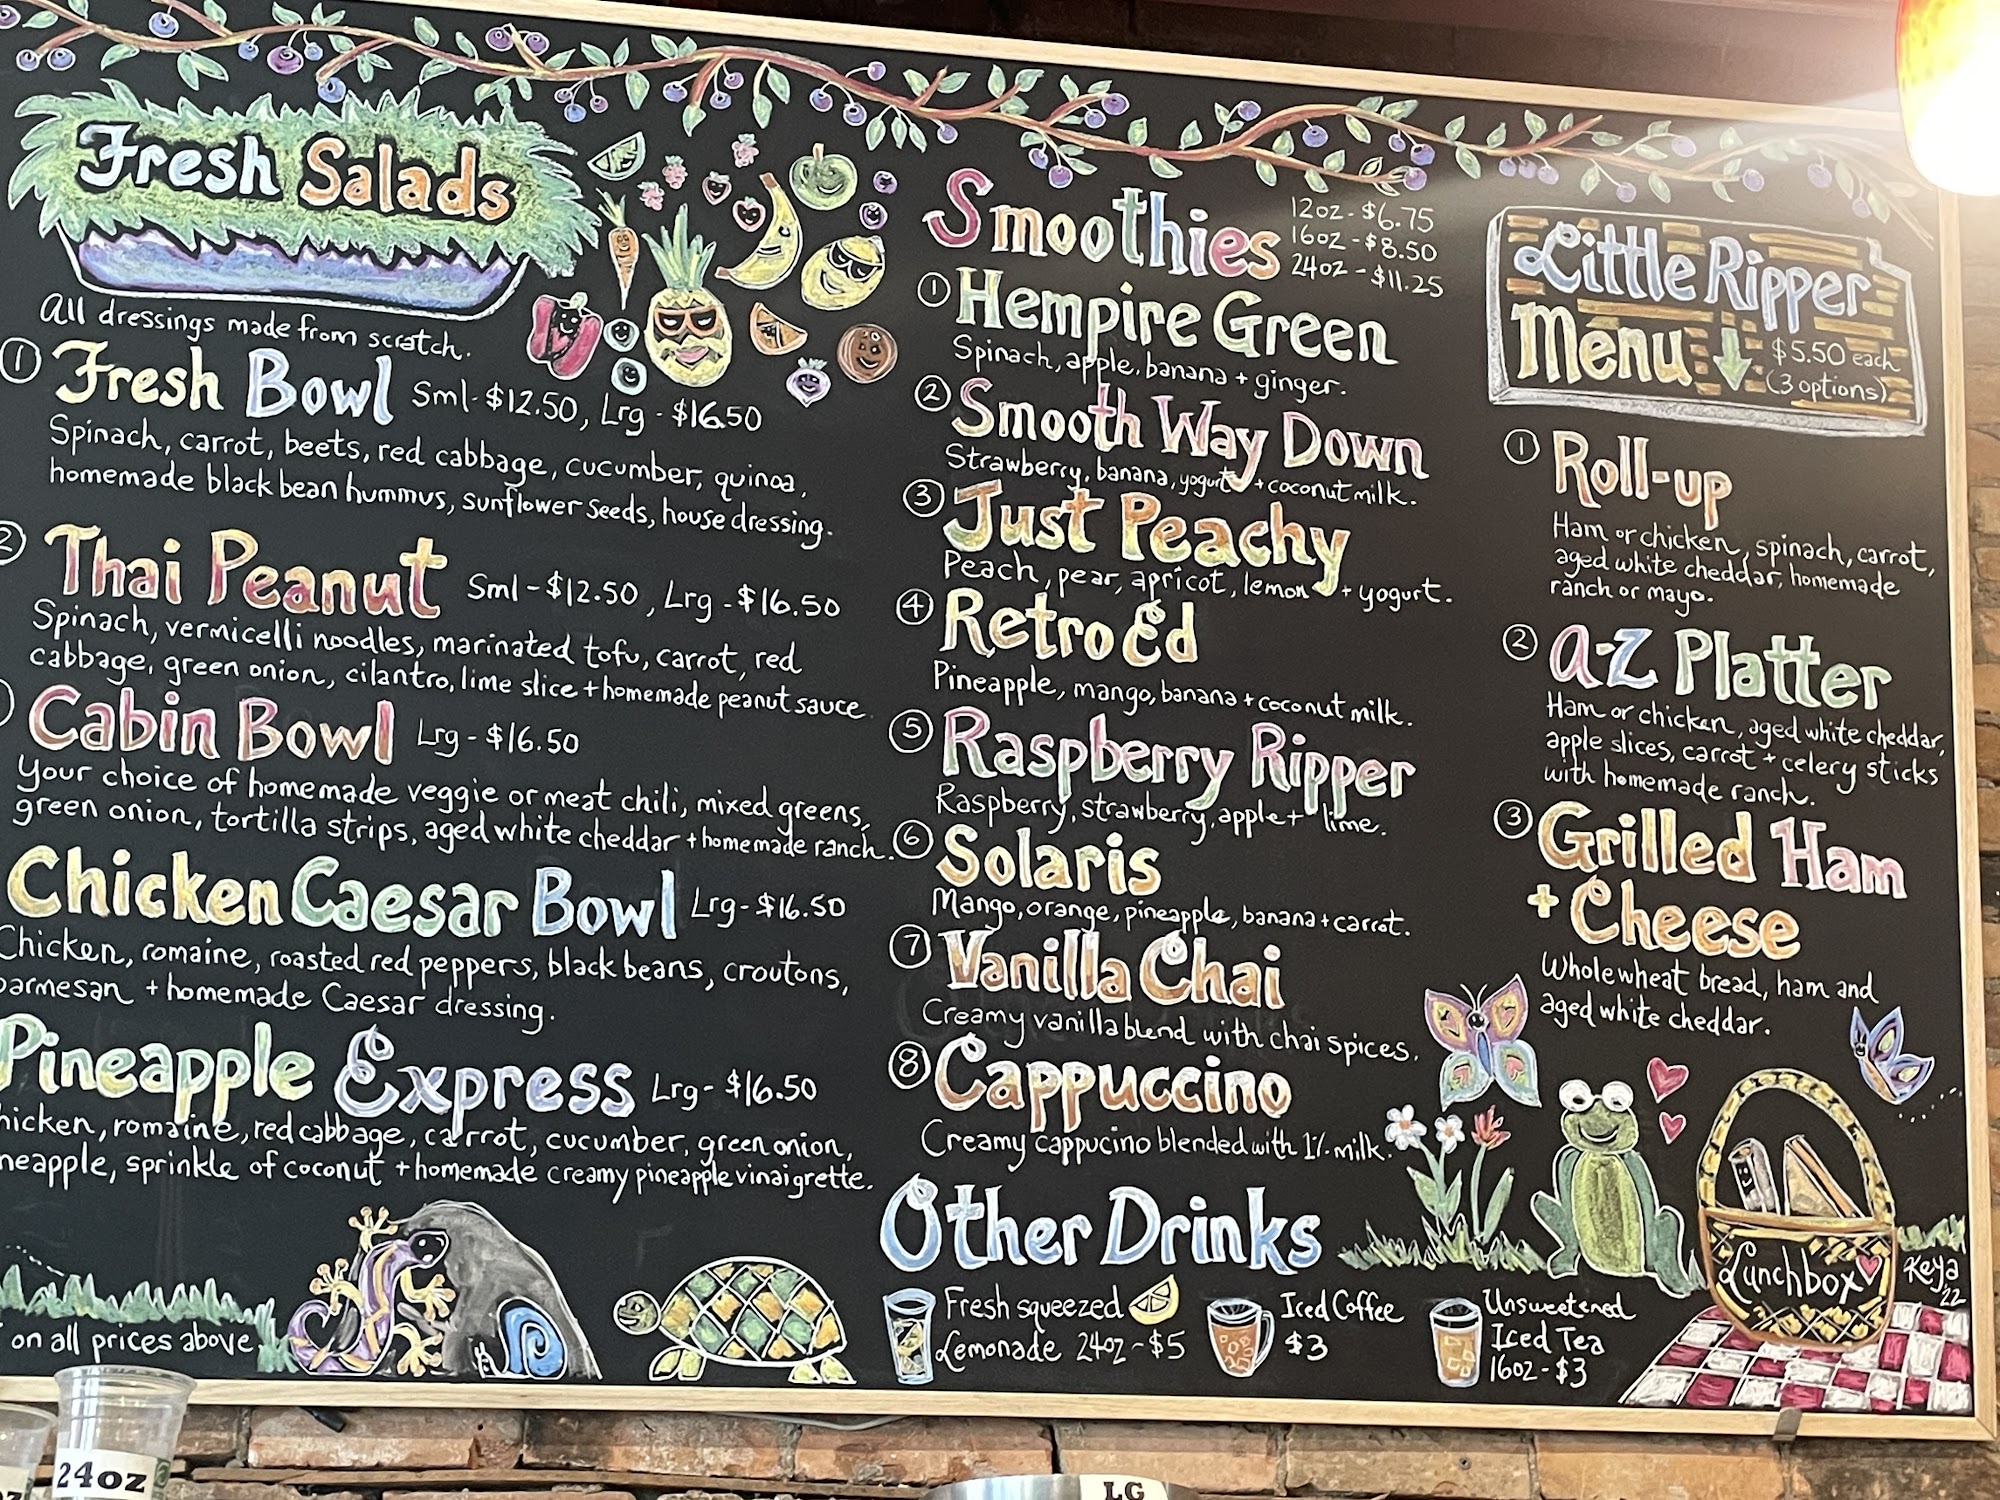 Fresh Salads
All dressings made from scratch.
① Fresh Bowl Sml-$12.50, Lrg-$16.50
Spinach, carrot, beets, red cabbage, cucumber, quinoa,
homemade black bean hummus, sunflower seeds, house dressing.
② Thai Peanut Sml-$12.50, Lrg-$16.50
Spinach, vermicelli noodles, marinated tofu, carrot, red
cabbage, green onion, cilantro, lime slice + homemade peanut sauce.
Cabin Bowl Lrg-$16.50
Your choice of homemade veggie or meat chili, mixed greens,
green onion, tortilla strips, aged white cheddar + homemade ranch.
Chicken Caesar Bowl Lrg-$16.50
Chicken, romaine, roasted red peppers, black beans, croutons,
parmesan + homemade Caesar dressing.
Pineapple Express Lrg-$16.50
hicken, romaine, red cabbage, carrot, cucumber, green onion,
neapple, sprinkle of coconut + homemade creamy pineapple vinaigrette.
on all prices above
Smoothies
12oz-$6.75
16oz-$8.50
24oz-$11.25
① Hempire Green
Spinach, apple, banana + ginger.
② Smooth Way Down
Strawberry, banana, yogurt + coconut milk.
③ Just Peachy
Peach, pear, apricot, lemon + yogurt.
④ Retro Ed
Pineapple, mango, banana + coconut milk.
⑤ Raspberry Ripper
Raspberry, strawberry, apple + lime.
⑥ Solaris
Mango, orange, pineapple, banana + carrot.
⑦ Vanilla Chai
Creamy vanilla blend with chai spices.
⑧ Cappuccino
Creamy cappucino blended with 1% milk.
Other Drinks
Fresh squeezed
Lemonade 24oz-$5
Iced Coffee
$3
Unsweetened
Iced Tea
16oz-$3
Little Ripper
Menu
$5.50 each
(3 options)
① Roll-up
Ham or chicken, spinach, carrot,
aged white cheddar, homemade
ranch or mayo.
② A-Z Platter
Ham or chicken, aged white cheddar,
apple slices, carrot + celery sticks
with homemade ranch.
③ Grilled Ham
+ Cheese
Whole wheat bread, ham and
aged white cheddar.
Lunchbox
Keya
22
24oz
LG